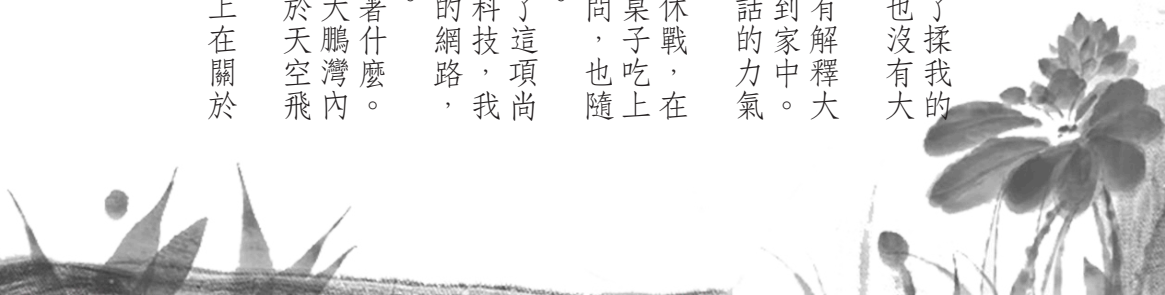 了揉我的
也沒有大
有解釋大
到家中。
話的力氣
休戰，在
桌子吃上
問，也隨
。
了這項尚
科技，我
的網路，
。
著什麼。
大鵬灣內
於天空飛
上在關於